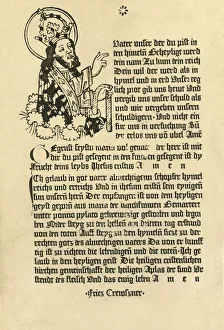 Vater unser der du pist in
den himeln Geheyliget werd
dein nam Zu kum dein reich
Dein wil der werd als in
hymel und in erd unser teg
lich prot gib uns heut und
vergib uns unser schuld als
und wir vergeben unsern
schuldigern Und nicht
für uns in versuchung Su
der erlos uns von übel Amen
Gegrust seystu maria vol genad der herr ist mit
dir du pist gesegent in den frawen gesegent ist dy
frucht deins leybs Jhesus cristus Amen
Ich glaub in got vater almechtigenn schopfer hymel
reichs und ertreichs Und in ihesum cristum sein eynigen
sun unsern herren der enpfangen ist von dem heyligen
geyst geporn aus maria der iunckfrawen Gemartert
unter poncio pylato gekreuziget gestorben und begra
ben Und steyg zu den hellen am dritten tag erstund
von den toten Auff steyg zu den hymeln sitzt zu der
rechten gotz des almechtigen vaters Da von er kunff
tig ist zu richten die lebendigen und die toten Ich ge
laub in den heyligen geist Die heiligen cristenlichen
kirchen gemeinschafft der heiligen Aplas der sund Ur
stend des fleisch Und das ewig leben Amen
Fricz Creussner